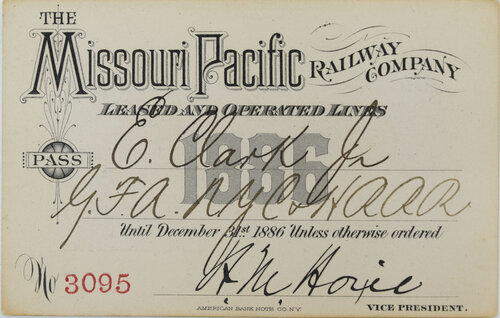 THE
Missouri Pacific
RAILWAY
COMPANY
LEASED AND OPERATED LINES
1886
PASS
E. Clark Jr
G. F. A. N.Y.C. & H.R.R.R.
Until December 31st. 1886 Unless otherwise ordered
No 3095
H. M. Hoxie
AMERICAN BANK NOTE CO. N.Y.
VICE PRESIDENT.